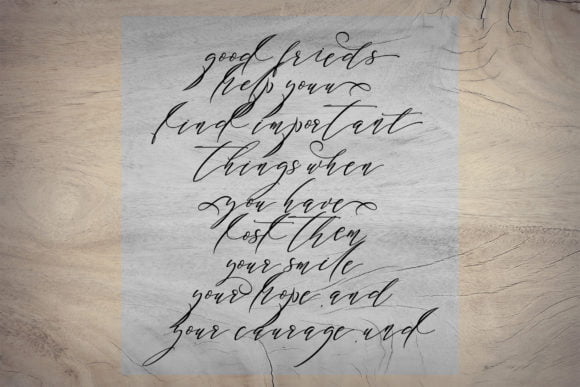 good frieds
help youu
find important
things when
you have
lost them
your smile
your hope and
your caurage and